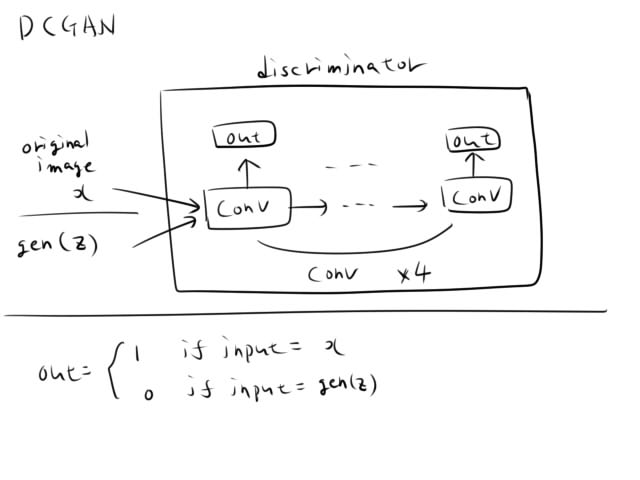 DCGAN
discriminator
original
image
x
gen(z)
out
out
conv
conv
conv ×4
out= { 1 if input = x
0 if input = gen(z)